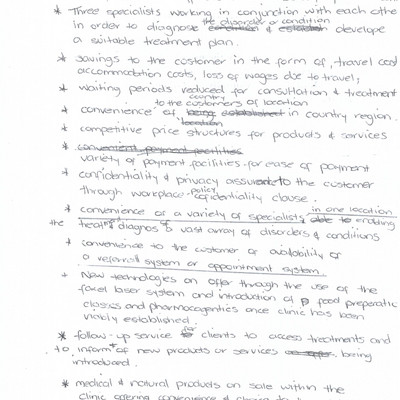 * Three specialists working in conjunction with each othe
the disorder or condition
In order to diagnose condition & establish develope
a suitable treatment plan.
* savings to the customer in the form of, travel cost
accommodation costs, loss of wages due to travel;
* waiting periods reduced for consultation & treatment
country
to the customers of location
* convenience of being established in country region.
location
* competitive price structures for products & services
* convenient payment facilities
variety of payment facilities - for ease of payment
* confidentiality & privacy assurance to the customer
through workplace policy confidentiality clause.
* convenience of a variety of specialists in one location able to enabling
the treat & diagnos a vast array of disorders & conditions
* convenience to the customer of availability of
a referral system or appointment system
* New technologies on offer through the use of the
facel laser system and introduction of food preparatic
classes and pharmacogentics once clinic has been
viably established.
* follow-up service for clients to access treatments and
to inform of new products or services being
introduced.
* medical & natural products on sale within the
clinic offering convenience &